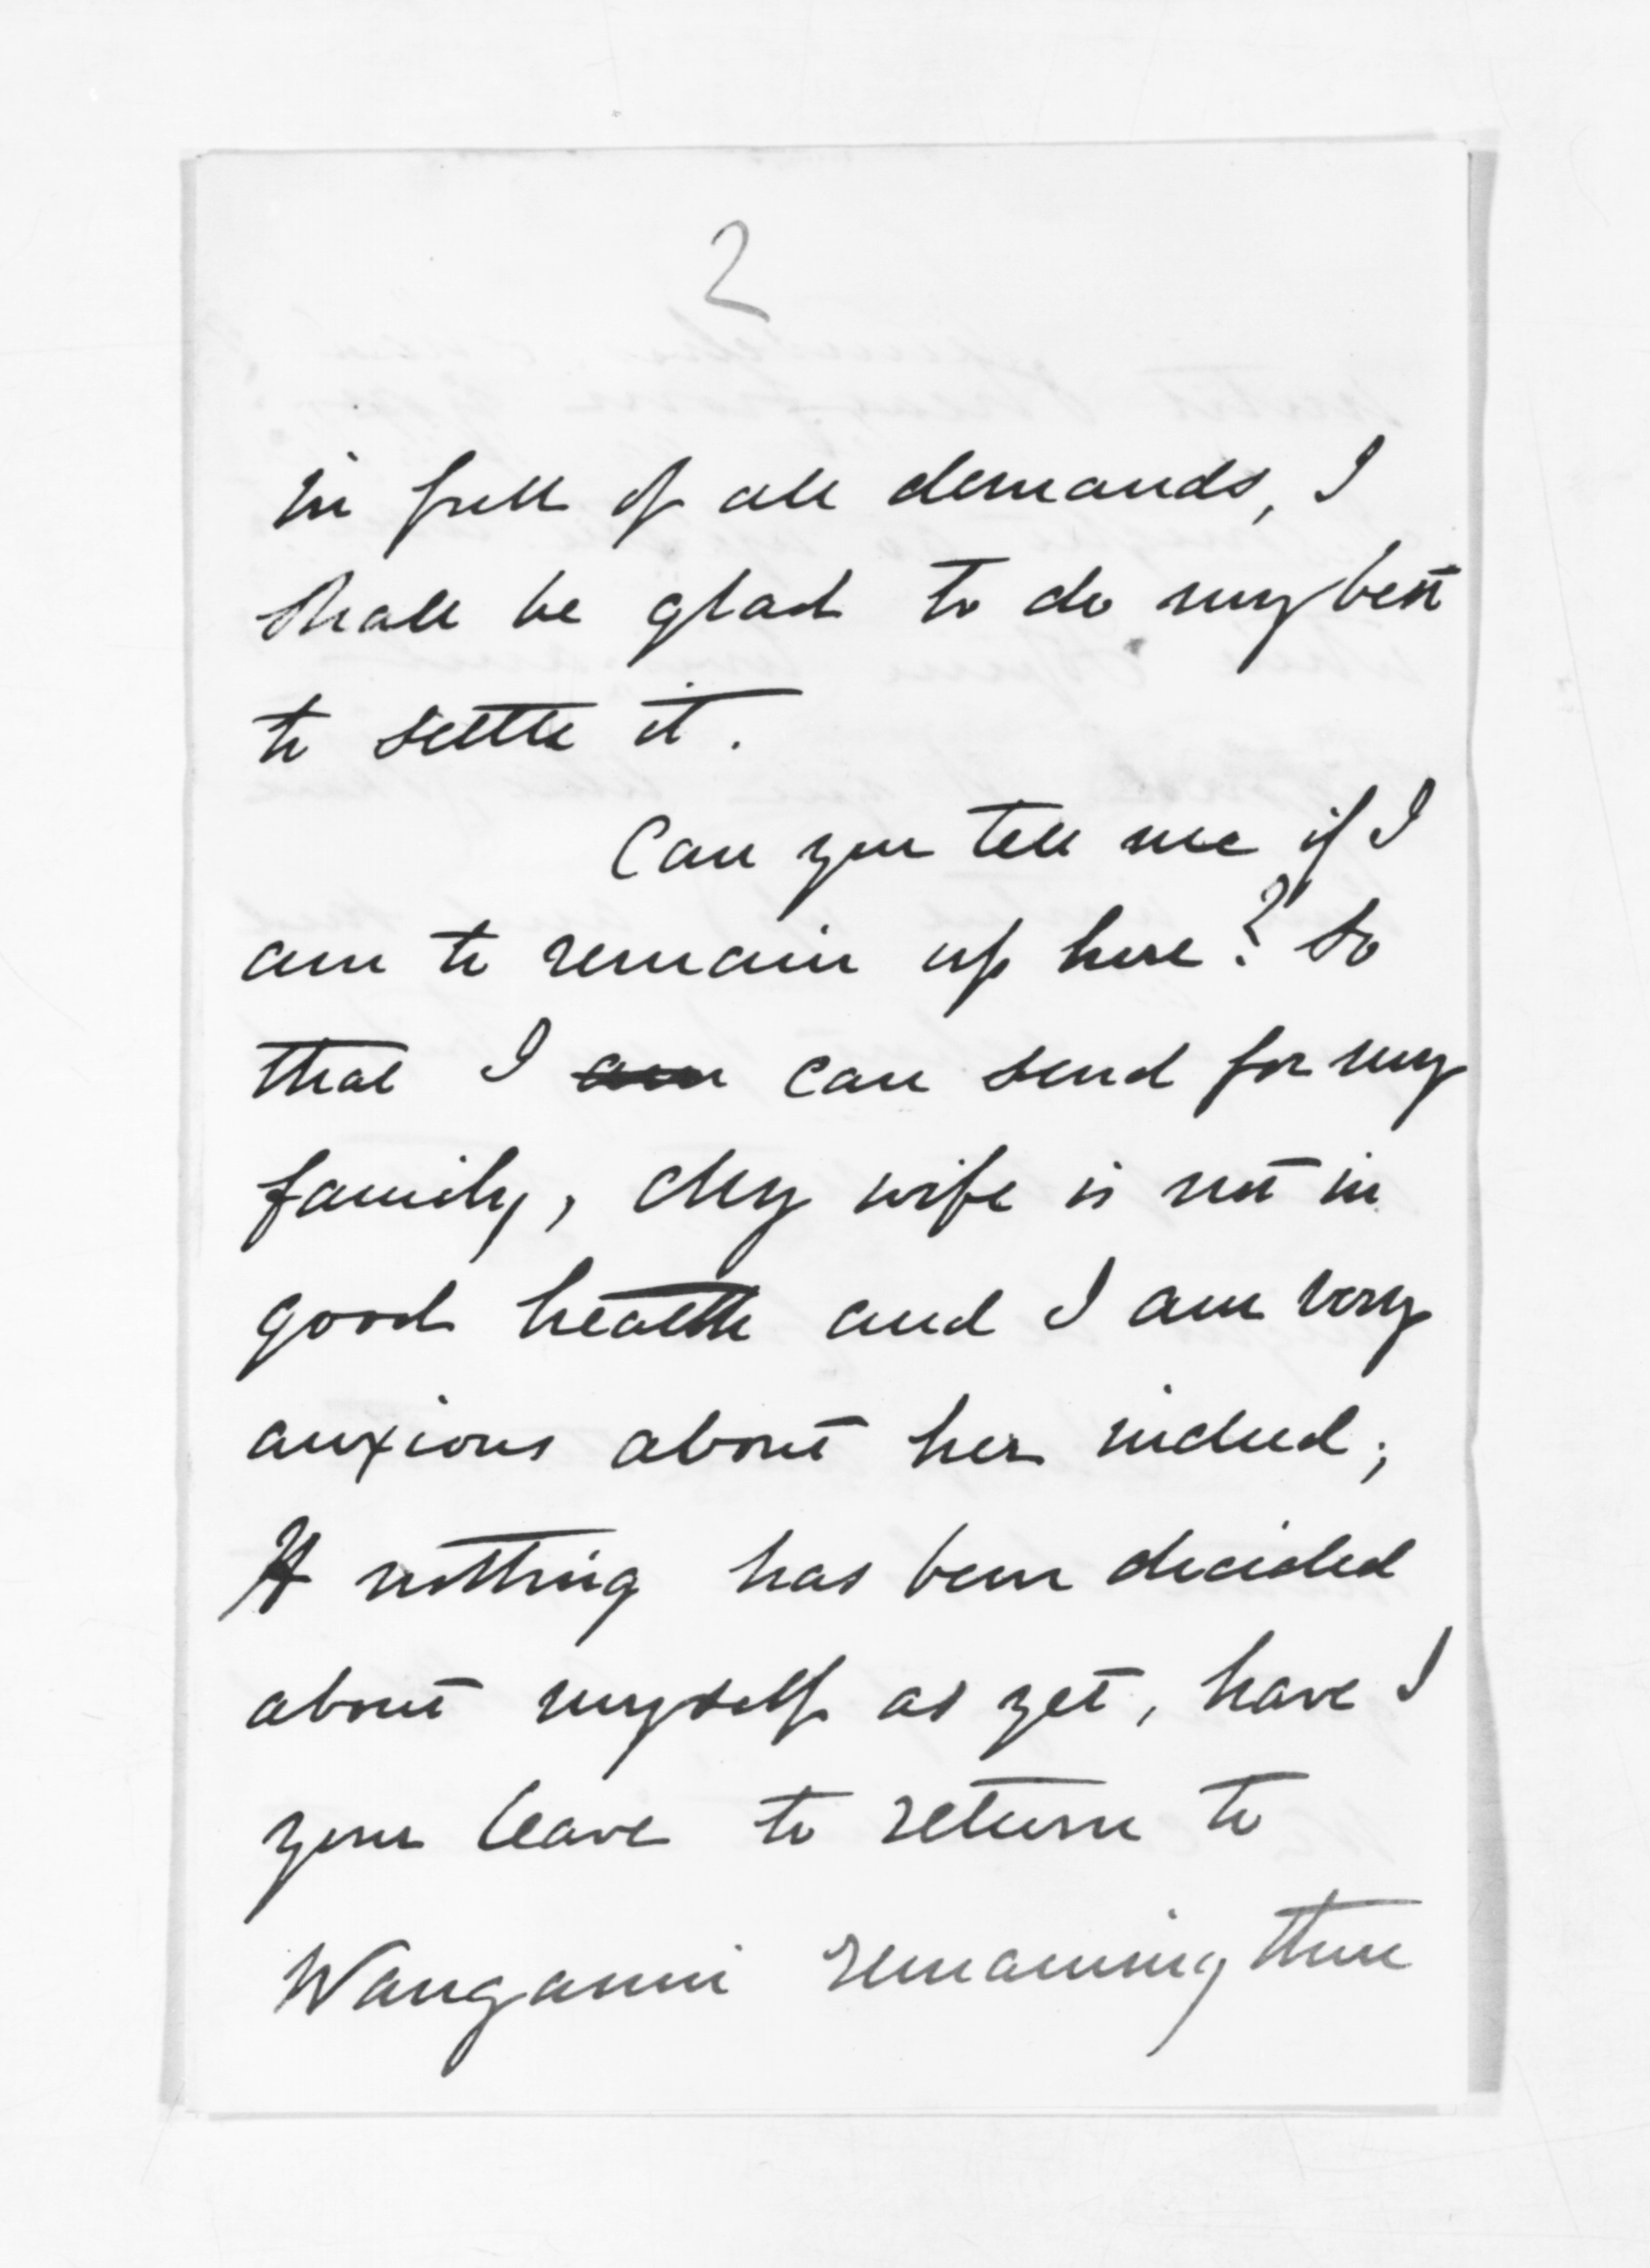 2
in full of all demands, I
shall be glad to do my best
to settle it.
Can you tell me if I
am to remain up here? so
that I am can send for my
family, My wife is not in
good health and I am very
anxious about her indeed;
If nothing has been decided
about myself as yet, have I
your leave to return to
Wanganui remaining there